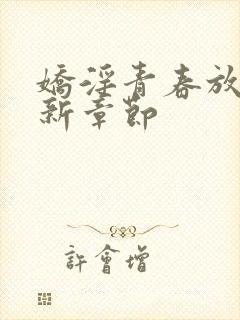 嬌淫青春放
新章節
許會增